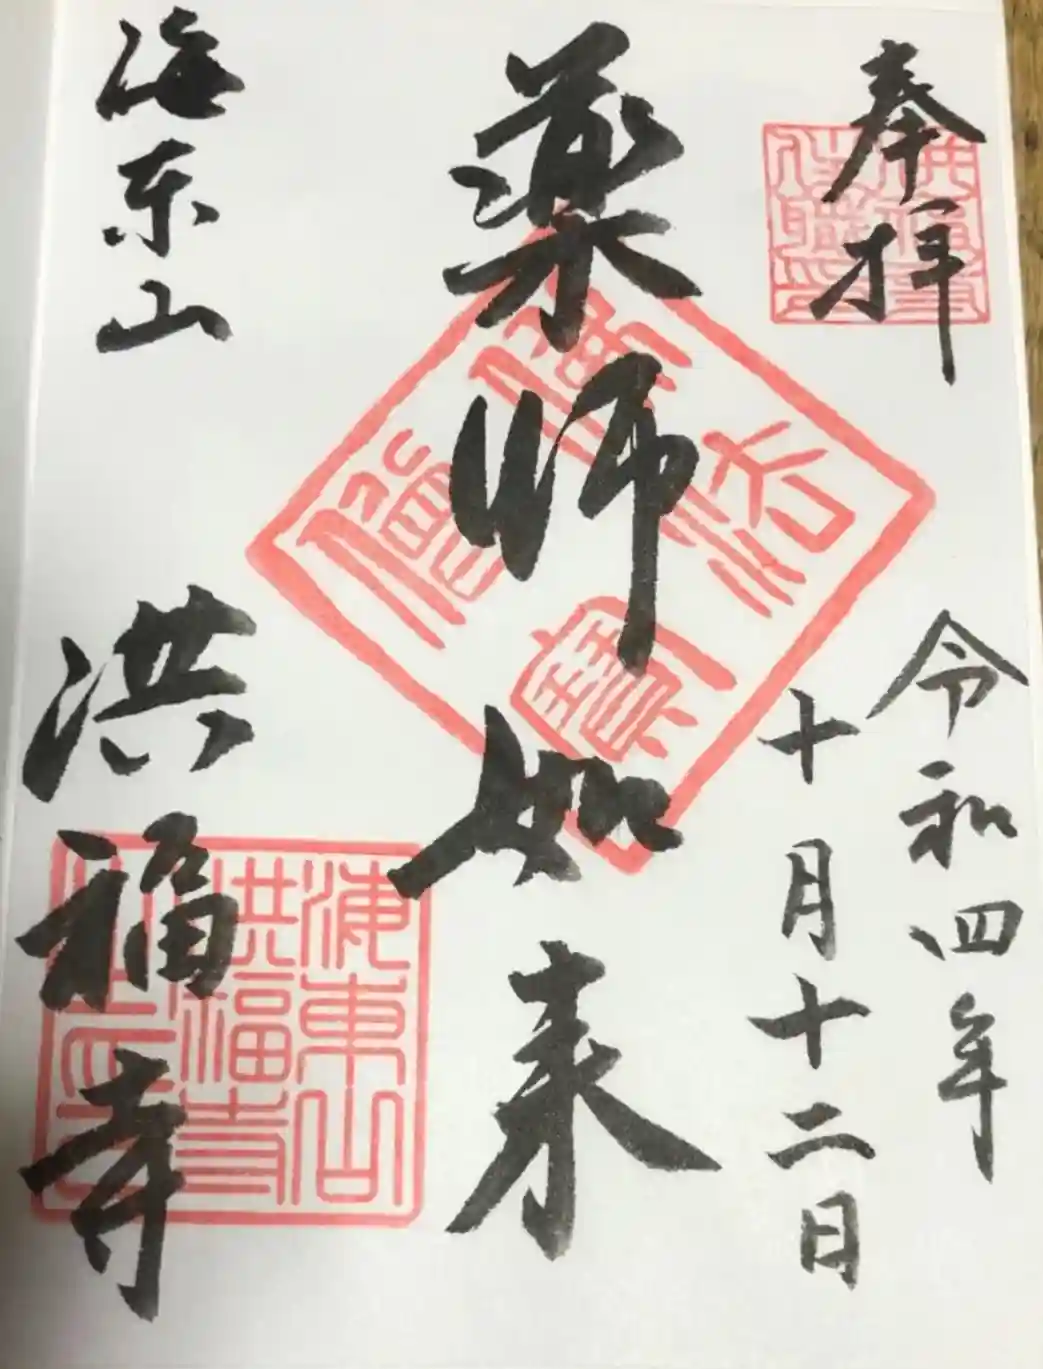 奉拝
令和四年
十月十二日
薬師如来
佛法僧寳
海东山
洪福寺
海東山
洪福寺